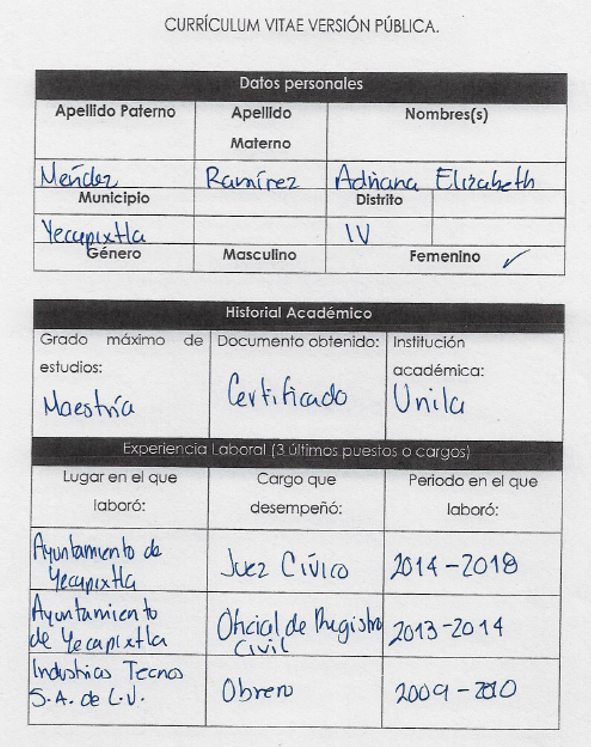 CURRÍCULUM VITAE VERSIÓN PÚBLICA.
Datos personales
Apellido Paterno Apellido Materno Nombres(s)
Méndez Ramírez Adriana Elizabeth
Municipio Distrito
Yecapixtla IV
Género Masculino Femenino ✓
Historial Académico
Grado máximo de estudios: Documento obtenido: Institución académica:
Maestría Certificado Unila
Experiencia Laboral (3 últimos puestos o cargos)
Lugar en el que laboró: Cargo que desempeñó: Periodo en el que laboró:
Ayuntamiento de Yecapixtla Juez Cívico 2014-2018
Ayuntamiento de Yecapixtla Oficial de Registro Civil 2013-2014
Industrias Tecnos S.A. de C.V. Obrero 2009-2010